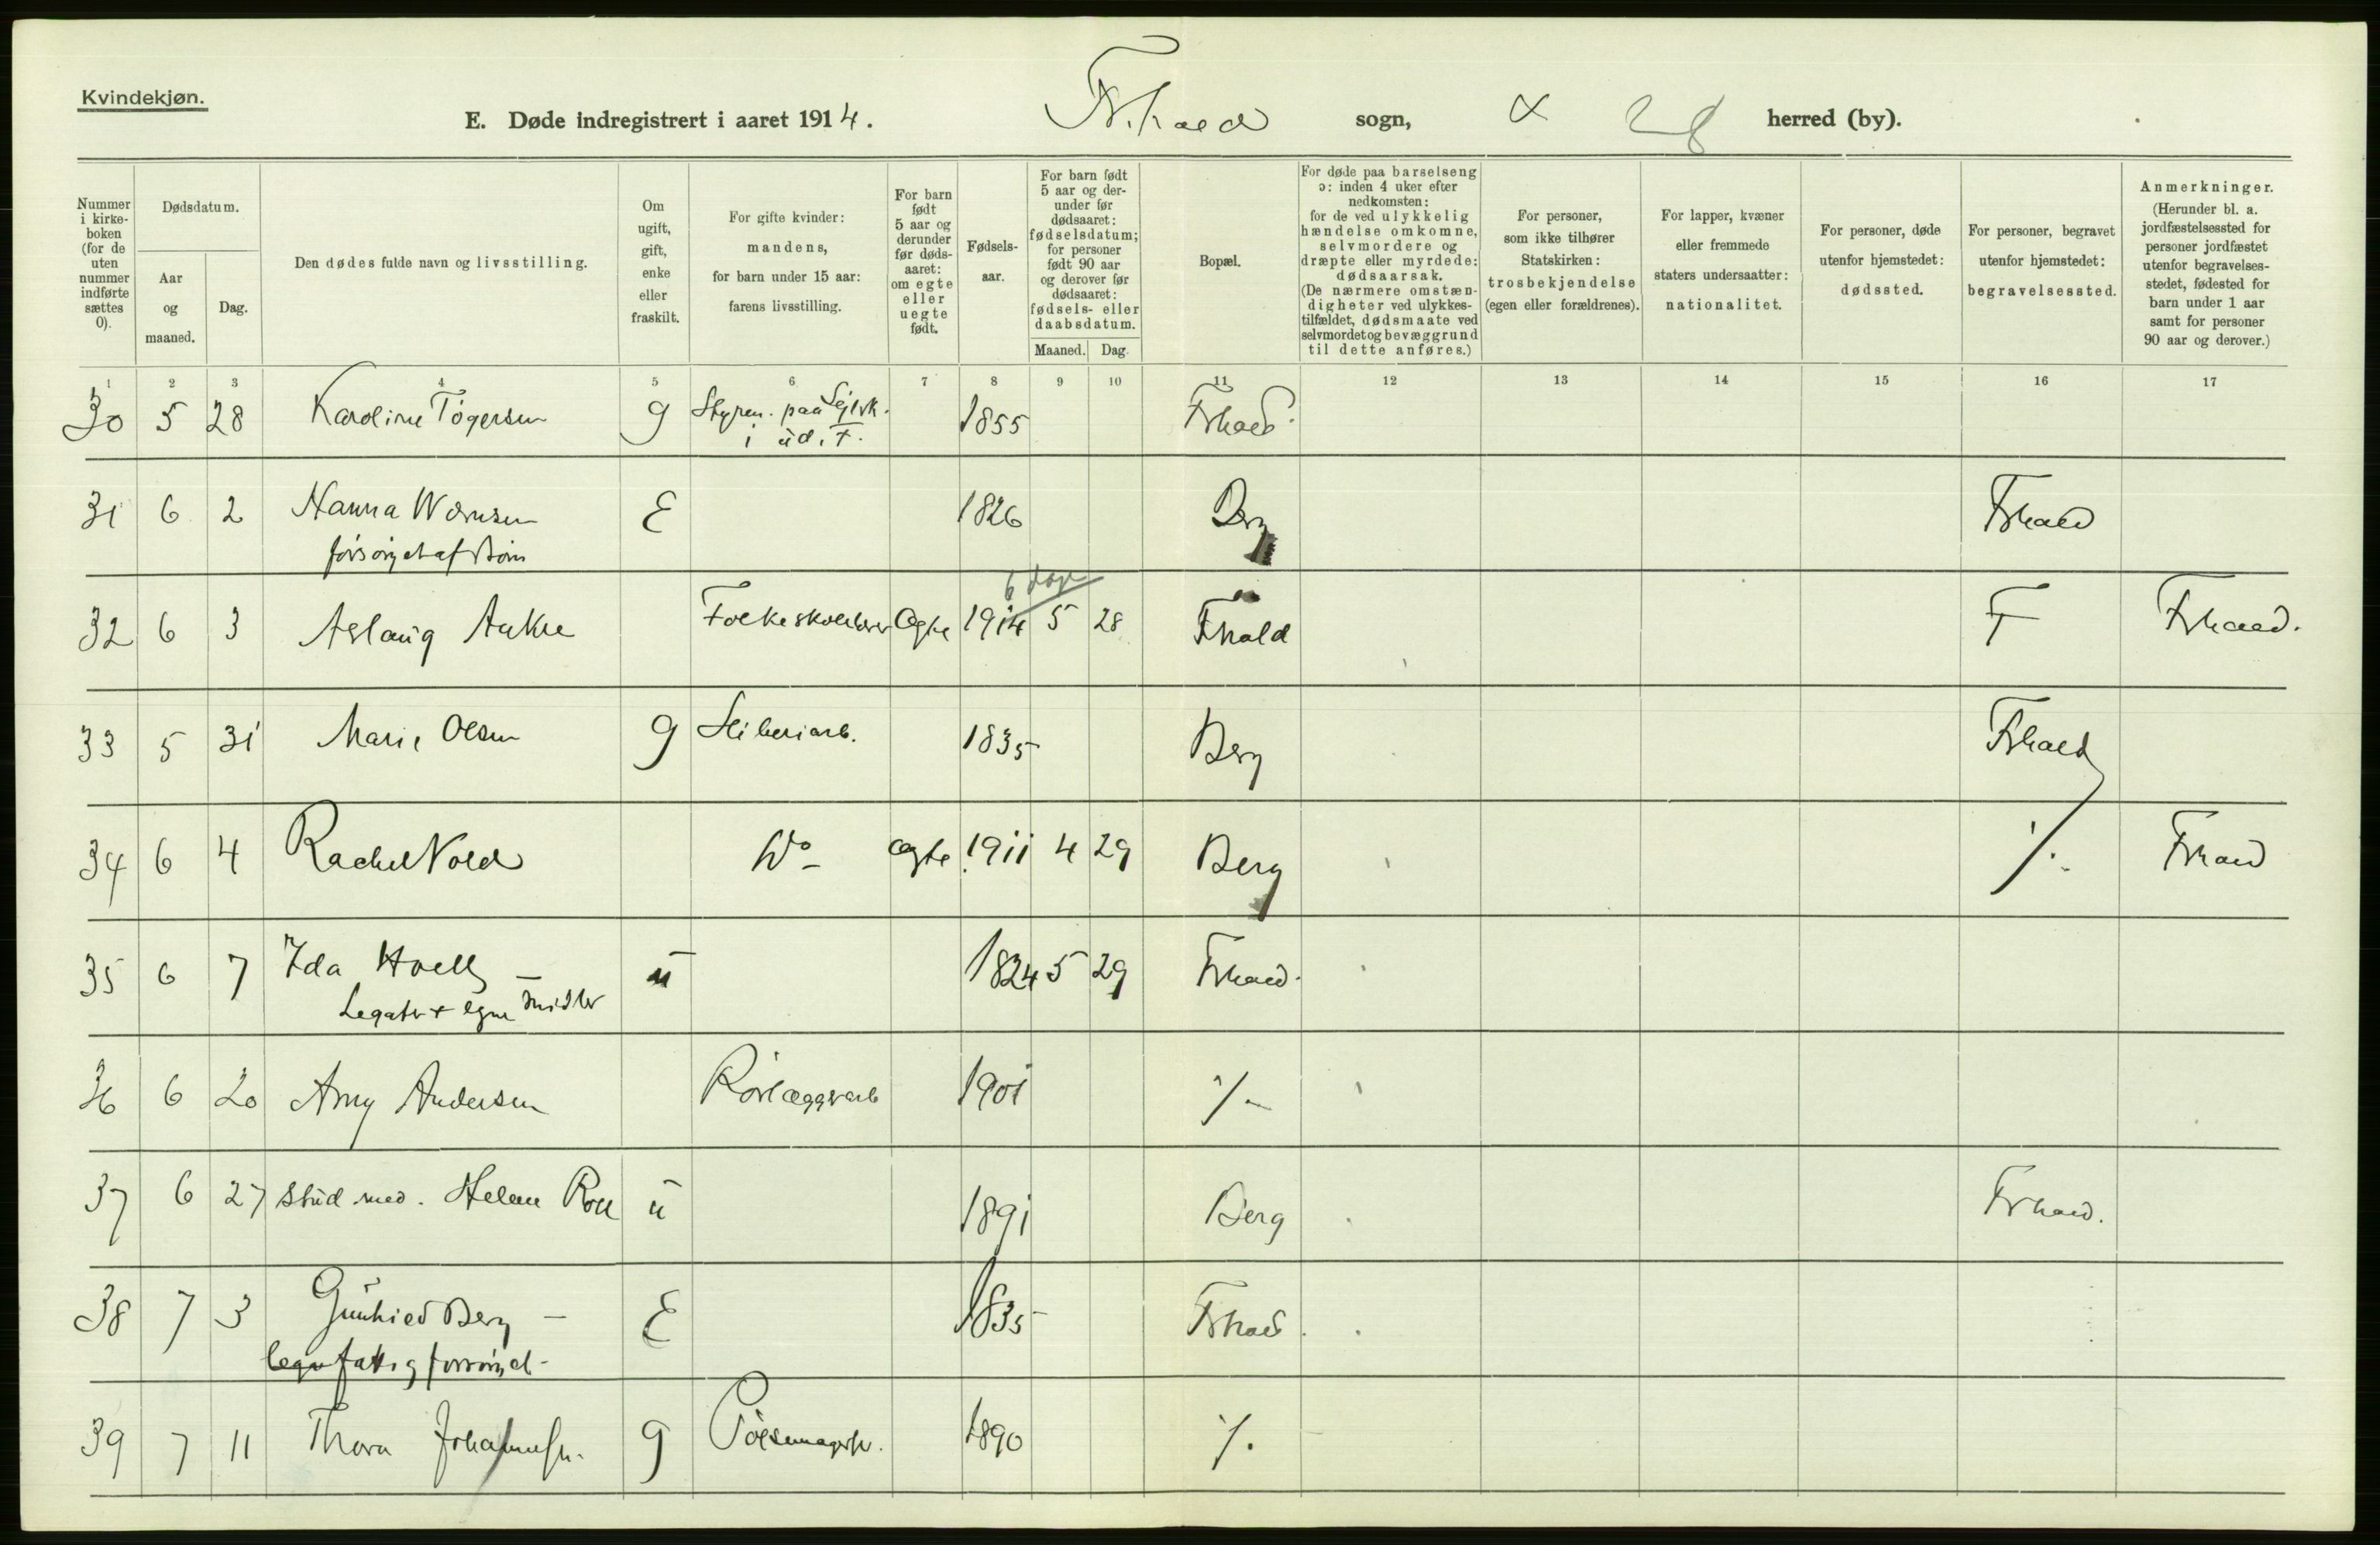 Kvindekjøn.
E. Døde indregistrert i aaret 1914. Fr.hald sogn, herred (by).
Nummer i kirkeboken (for de uten nummer indførte sættes 0).
Dødsdatum.
Aar og maaned.
Dag.
Den dødes fulde navn og livsstilling.
Om ugift, gift, enke eller fraskilt.
For gifte kvinder: mandens, for barn under 15 aar: farens livsstilling.
For barn født 5 aar og derunder før dødsaaret: om egte eller uegte født.
Fødselsaar.
For barn født 5 aar og derunder før dødsaaret: fødselsdatum; for personer født 90 aar og derover før dødsaaret: fødsels- eller daabsdatum.
Maaned. Dag.
Bopæl.
For døde paa barselseng ɔ: inden 4 uker efter nedkomsten: for de ved ulykkelig hændelse omkomne, selvmordere og dræpte eller myrdede: dødsaarsak. (De nærmere omstændigheter ved ulykkestilfældet, dødsmaate ved selvmordet og bevæggrund til dette anføres.)
For personer, som ikke tilhører Statskirken: trosbekjendelse (egen eller forældrenes).
For lapper, kvæner eller fremmede staters undersaatter: nationalitet.
For personer, døde utenfor hjemstedet: dødssted.
For personer, begravet utenfor hjemstedet: begravelsessted.
Anmerkninger. (Herunder bl. a. jordfæstelsessted for personer jordfæstet utenfor begravelsesstedet, fødested for barn under 1 aar samt for personer 90 aar og derover.)
1 2 3 4 5 6 7 8 9 10 11 12 13 14 15 16 17
30 5 28 Karoline Tögersen g Styrm. paa Sejlsk. 1855 Frhald
i ud. F.
31 6 2 Hanna E 1826 Berg Frhald
forsörget af Börn
6 dage
32 6 3 Aslaug Aakre Folkeskolelærer Ægte 1914 5 28 Frhald F Frhald.
33 5 31 Marie Olsen g Sliberiarb. 1835 Berg Frhald
34 6 4 Rachel Vold Do Ægte 1911 4 29 Berg ./. Frhald
35 6 7 Ida u 1824 5 29 Frhald.
Legater + egne midler
36 6 20 Amy Andersen Rörlæggerarb 1901 ./-
37 6 27 stud med. Helene Roll u 1891 Berg Frhald.
38 7 3 Gunhild Berg - E 1835 Frhald.
fattigforsörget -
39 7 11 Thora Johannesen. g Pölsemager 1890 ./.